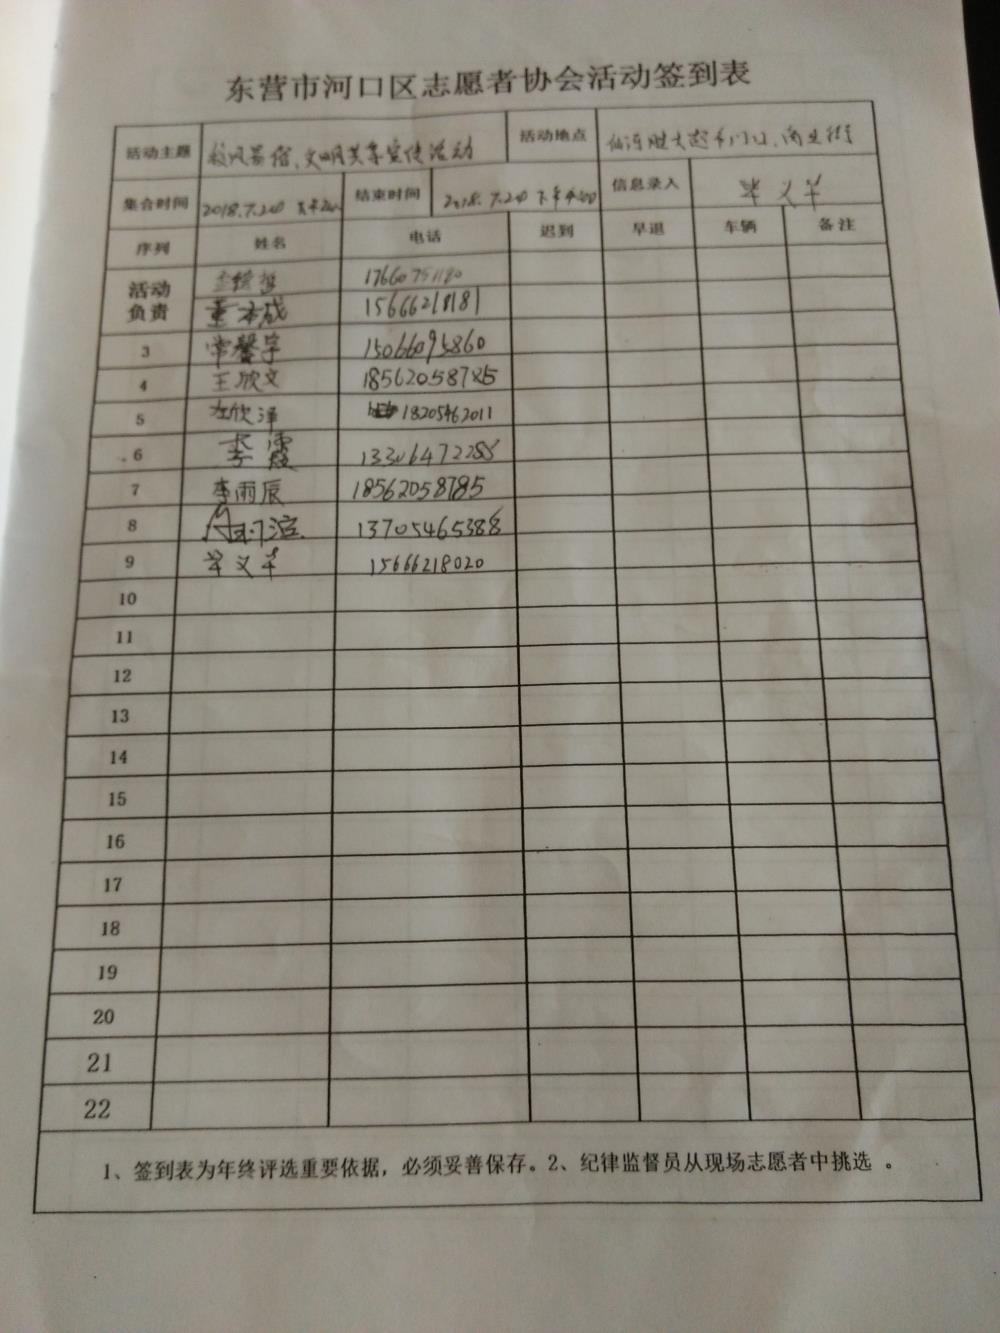 东营市河口区志愿者协会活动签到表
活动主题 移风易俗、文明共享宣传活动 活动地点 仙河胜大超市门口、商业街
集合时间 2018.7.20 结束时间 2018.7.20 下午 信息录入 毕义华
序列 姓名 电话 迟到 早退 车辆 备注
活动负责 17660751180
董本成 15666218181
3 常馨宇 15066095860
4 王欣文 18562058785
5 欣泽 18205462011
6 李霞 13306472288
7 李雨辰 18562058785
8 13705465388
9 毕义华 15666218020
10
11
12
13
14
15
16
17
18
19
20
21
22
1、签到表为年终评选重要依据，必须妥善保存。2、纪律监督员从现场志愿者中挑选 。